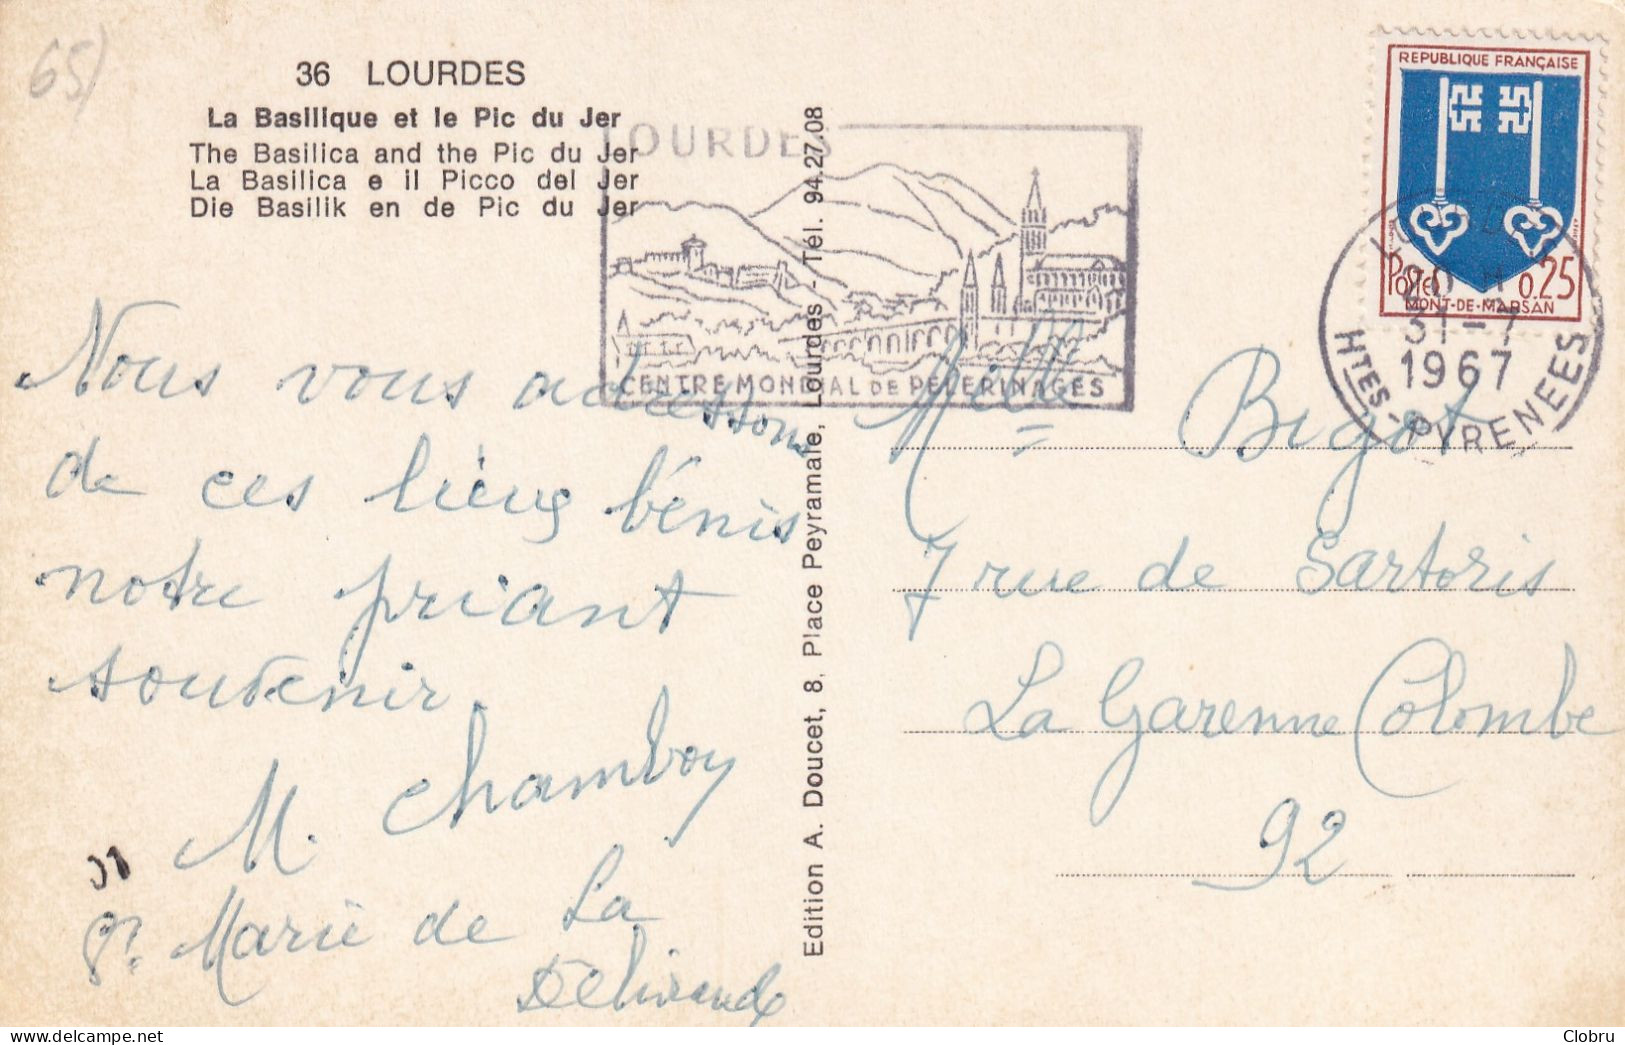 65)
36 LOURDES
La Basilique et le Pic du Jer
The Basilica and the Pic du Jer
La Basilica e il Picco del Jer
Die Basilik en de Pic du Jer
LOURDES
CENTRE MONDIAL DE PELERINAGES
REPUBLIQUE FRANÇAISE
Postes 0.25
MONT-DE-MARSAN
20 H
31-7
1967
HTES-PYRENEES
Nous vous adressons
de ces lieux bénis
notre priant
souvenir
M. Chamboy
Sr Marie de La
Délivrande
Edition A. Doucet, 8, Place Peyramale, Lourdes - Tél. 94.27.08
Mlle Bigot
7 rue de Sartoris
La Garenne Colombe
92
Clobru